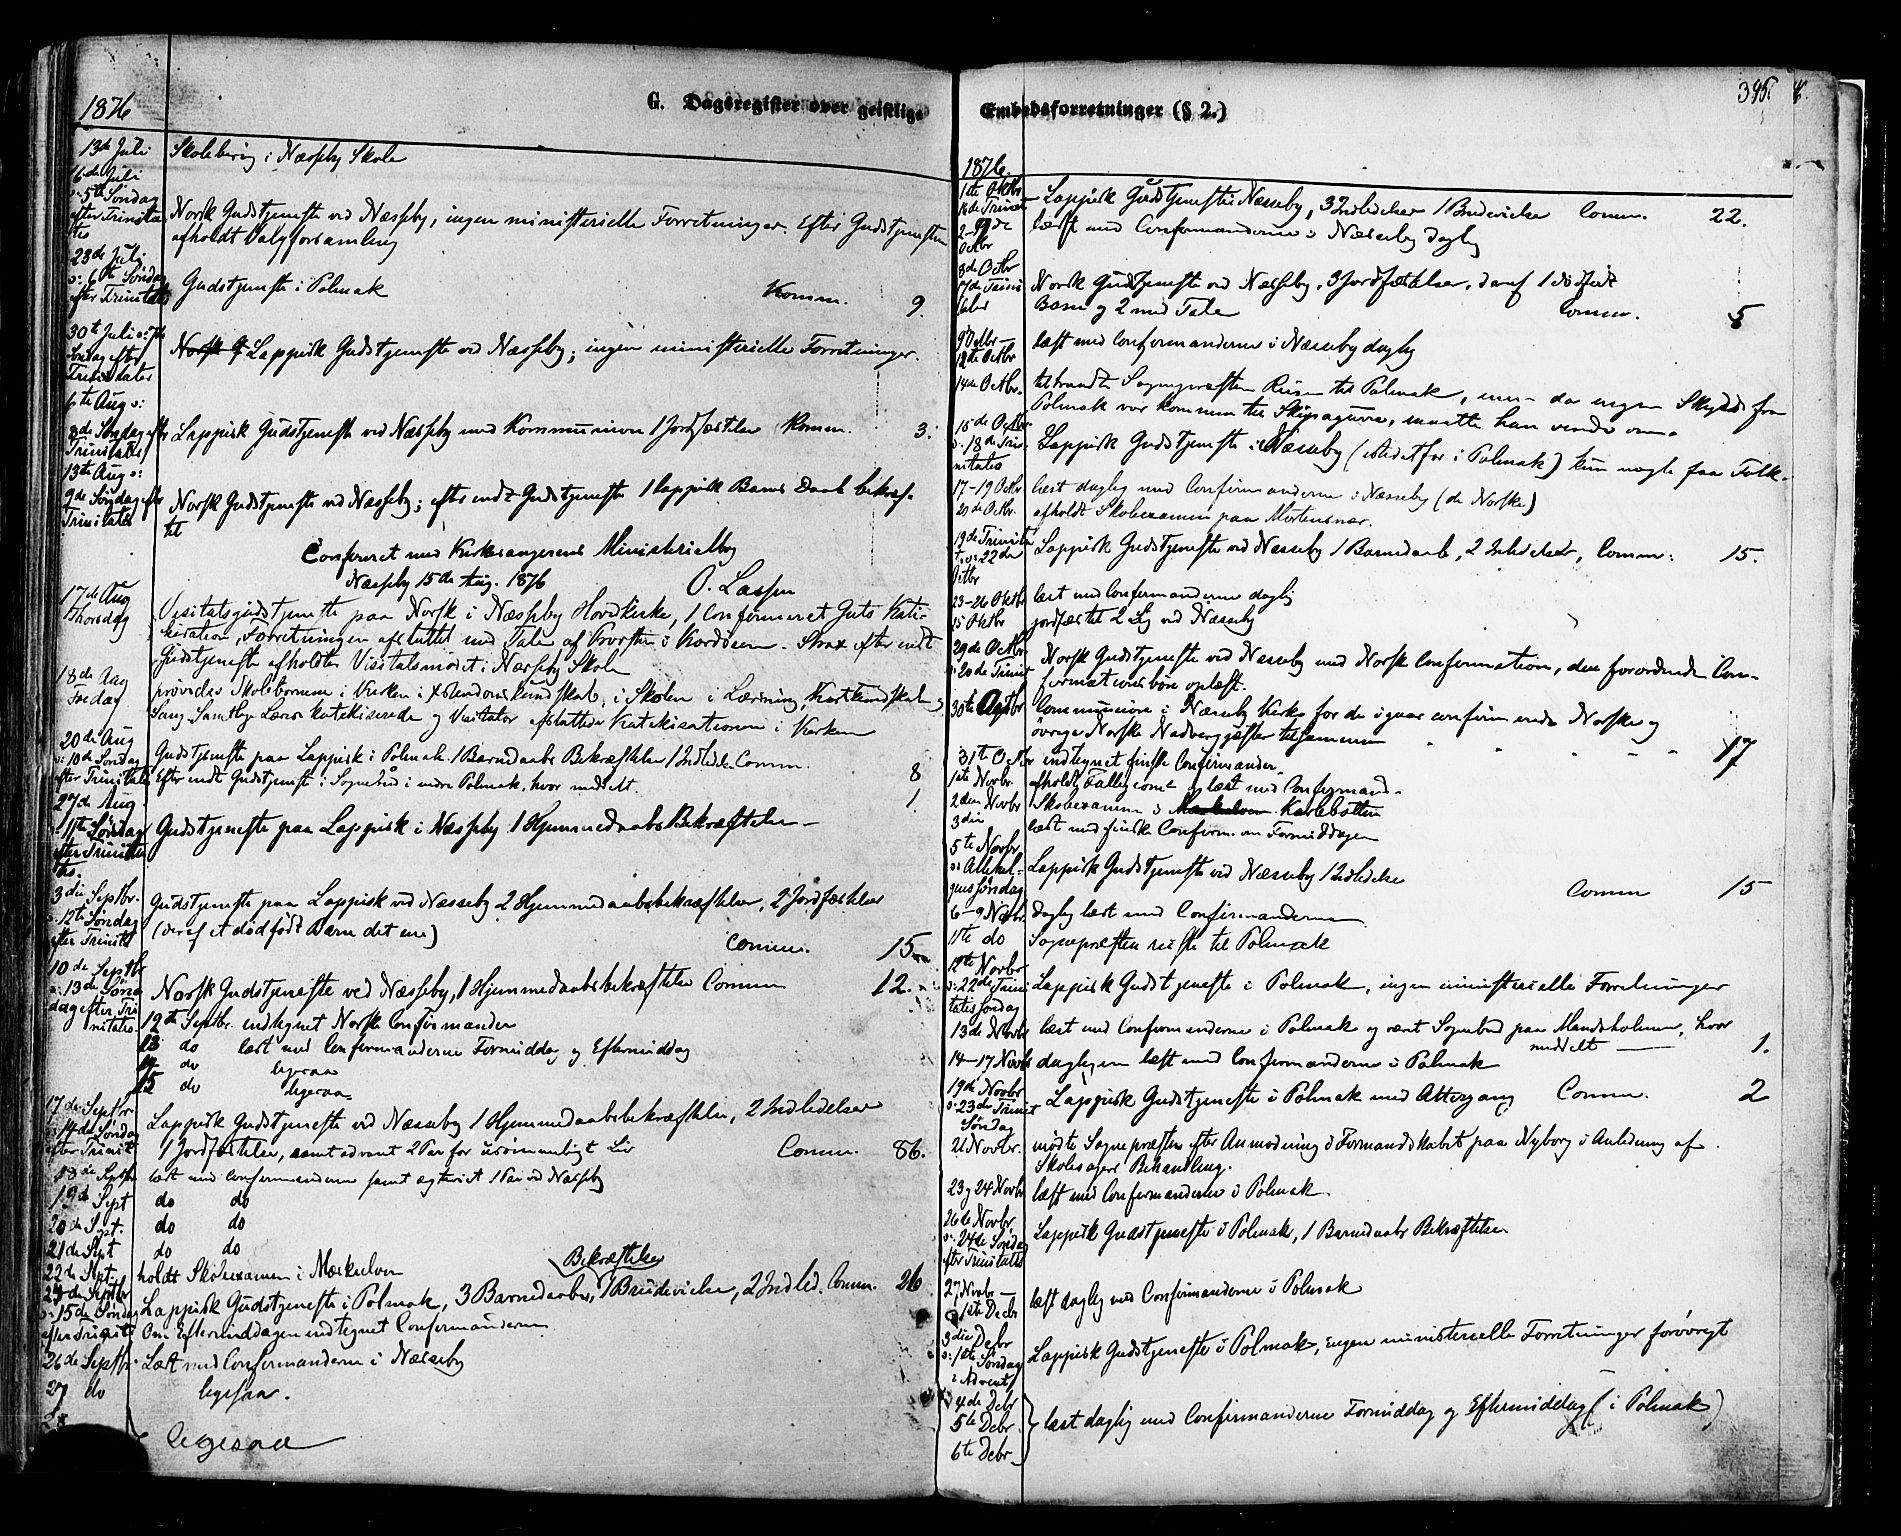 1876
G. Dagsregister over geistlige
13de Juli Skolebesøg i Næsseby Skole
16de Juli
ɔ: 5te Søndag
efter Trinita
tis
Norsk Gudstjeneste ved Næsseby, ingen ministerielle Forretninger. Efter Gudstjenesten
afholdt Valgforsamling
23de Juli
ɔ: 6te Søndag
efter Trinitatis
Gudstjeneste i Polmak Komm. 9.
30te Juli ɔ: 7de
Søndag efter
Trinitatis
Norsk G Lappisk Gudstjeneste ved Næsseby; ingen ministerielle Forretninger.
6te Aug ɔ:
8de Søndag efter
Trinitatis
Lappisk Gudstjeneste ved Næsseby med Kommunion 1 Jordfæstelse Komm. 3.
13te Aug ɔ:
9de Søndag efter
Trinitatis
Norsk Gudstjeneste ved Næsseby; efter endt Gudstjeneste 1 lappisk Barns Daab bekræf-
tet
Confereret med Kirkesangerens Ministerialbog
Næsseby 15de Aug. 1876 O. Lassen
17de Aug
Thorsdag
Visitatsgudstjeneste paa Norsk i Næsseby Hovedkirke, 1 Confirmeret Guts Kate-
kisation, Forretningen afsluttet med Tale af Provsten i Vardøen. Strax efter endt
Gudstjeneste afholdtes Visitatsmødet i Næsseby Skole
18de Aug
Fredag
prøvedes Skolebørnene i Kirken i Xstendomskundskab, i Skolen i Læsning, Kartkundskab,
Sang. Samtlige Lærere katekiserede og Visitator afsluttede Katekisationen i Kirken
20de Aug
ɔ: 10de Søndag
efter Trinitatis
Gudstjeneste paa Lappisk i Polmak 1 Barnedaabs Bekræftelse 1 Indledelse Comm. 8
Efter endt Gudstjeneste i Sognebud i indre Polmak, hvor meddelt. 1.
27de Aug
ɔ: 11te Søndag
efter Trinita
tis.
Gudstjeneste paa Lappisk i Næsseby 1 HjemmedaabsBekræftelse –
3die Septbr.
ɔ: 12te Søndag
efter Trinitat
Gudstjeneste paa Lappisk ved Næsseby 2 Hjemmedaabsbekræftelser, 2 Jordfæstelser
(deraf et dødfødt Barn det ene) Comm. 15
10de Septbr
ɔ: 13de Søn
dag efter Tri
nitatis
Norsk Gudstjeneste ved Næsseby, 1 Hjemmedaabsbekræftelse Comm 12.
12te Septbr. indtegnet Norske Confirmander
13 do læst med Confirmanderne Formiddag og Eftermiddag
14 do ligesaa
15 do ligesaa
17de Septbr
ɔ: 14de Søndag
efter Trinit
Lappisk Gudstjeneste ved Næsseby 1 Hjemmedaabsbekræftelse, 2 Indledelser
1 Jordfæstelse, samt advaret 2 Par for usømmeligt Liv Comm. 86.
18de Septbr læst med Confirmanderne samt ægteviet 1 Par ved Næsseby
19de Sept do do
20de Sept. do do
21de Sept do do
22de Sept. holdt Skoleexamen i Mæskelven
Bekræftelse
24de Septbr
ɔ: 15de Søndag
efter Trinit
Lappisk Gudstjeneste i Polmak, 3 Barnedaabs, 1 Brudevielse, 2 Indled. Comm. 26
Om Eftermiddagen indtegnet Confirmanderne
26de Septbr. Læst med Confirmanderne i Næsseby
27 do ligesaa.
28 ligesaa
Embedsforretninger (§ 2.)
395.
1876.
1te Oktbr
16de Trinit
Lappisk Gudstjeneste i Næsseby, 3 Indledelser 1 Brudevielse Comm. 22.
2–7de
Octbr
læst med Confirmanderne i Næsseby daglig
8de Octbr
17de Trini
tatis
Norsk Gudstjeneste ved Næsseby, 3 Jordfæstelser, deraf 1 dødfødt
Barn og 2 med Tale Comm. 5
9 Octbr –
12de Octbr
læst med Confirmanderne i Næsseby daglig
14de Octbr. tiltraadte Sognepræsten Reisen til Polmak, men da ingen Skyds fra
Polmak var kommen til Skipagurra, maatte han vende om.
15de Octbr
ɔ: 18de Tri-
nitatis
Lappisk Gudstjeneste i Næsseby (istedetfor i Polmak) kun nogle faa Folk.
17–19 Octbr læst daglig med Confirmanderne i Næsseby (de Norske)
20de Octbr. afholdt Skoleexamen paa Mortensnæs.
19de Trinita
tis ɔ: 22de
Octbr
Lappisk Gudstjeneste ved Næsseby 1 Barnedaab, 2 Indledelser, Comm: 15.
23–26 Oktbr læst med Confirmanderne daglig
15 Oktbr jordfæstet 2 Lig ved Næsseby
29de Octbr
ɔ: 20de Trinit
Norsk Gudstjeneste ved Næsseby med Norsk Confirmation, den forordnede Con-
firmationsbøn oplæst.
30te Octbr Communion i Næsseby Kirke for de igaar confirmerede Norske og
øvrige Norske Nadvergjæster tilsammen 17
31te Octbr indtegnet finske Confirmander.
1te Novbr. afholdt Fattigcomm og læst med Confirmand.
2den Novbr Skoleexamen i Karlebotten
3die læst med finske Confirm. om Formiddagen
5te Novbr.
ɔ: Allehel-
gens Søndag
Lappisk Gudstjeneste ved Næsseby 1 Indledelse Comm 15
6–9 Novbr. Daglig læst med Confirmanderne
11te do Sognepræsten reiste til Polmak
12te Novbr
ɔ: 22de Trini
tatis Søndag
Lappisk Gudstjeneste i Polmak, ingen ministerielle Forretninger
13de Novbr læst med Confirmanderne i Polmak og været Sognebud paa Mandsholmen, hvor
meddelt 1.
14–17 Novbr dagligen læst med Confirmanderne i Polmak
19de Novbr
ɔ: 23de Trinit
Søndag
Lappisk Gudstjeneste i Polmak med Altergang Comm. 2
21 Novbr. mødte Sognepræsten efter Anmodning i Formandskabet paa Nyborg i Anledning af
Skolesagers Behandling.
23 og 24 Novbr læst med Confirmanderne i Polmak.
26de Novbr.
ɔ: 24de Søndag
efter Trinitatis
Lappisk Gudstjeneste i Polmak, 1 Barnedaabs Bekræftelse
27 Novbr –
1te Decbr
læst daglig med Confirmanderne i Polmak
3die Decbr
ɔ: 1te Søndag
i Advent
Lappisk Gudstjeneste i Polmak, ingen ministerielle Forretninger forøvrigt
4de Decbr
5te Decbr
6te Decbr
læst daglig med Confirmanderne Formiddag og Eftermiddag (i Polmak)